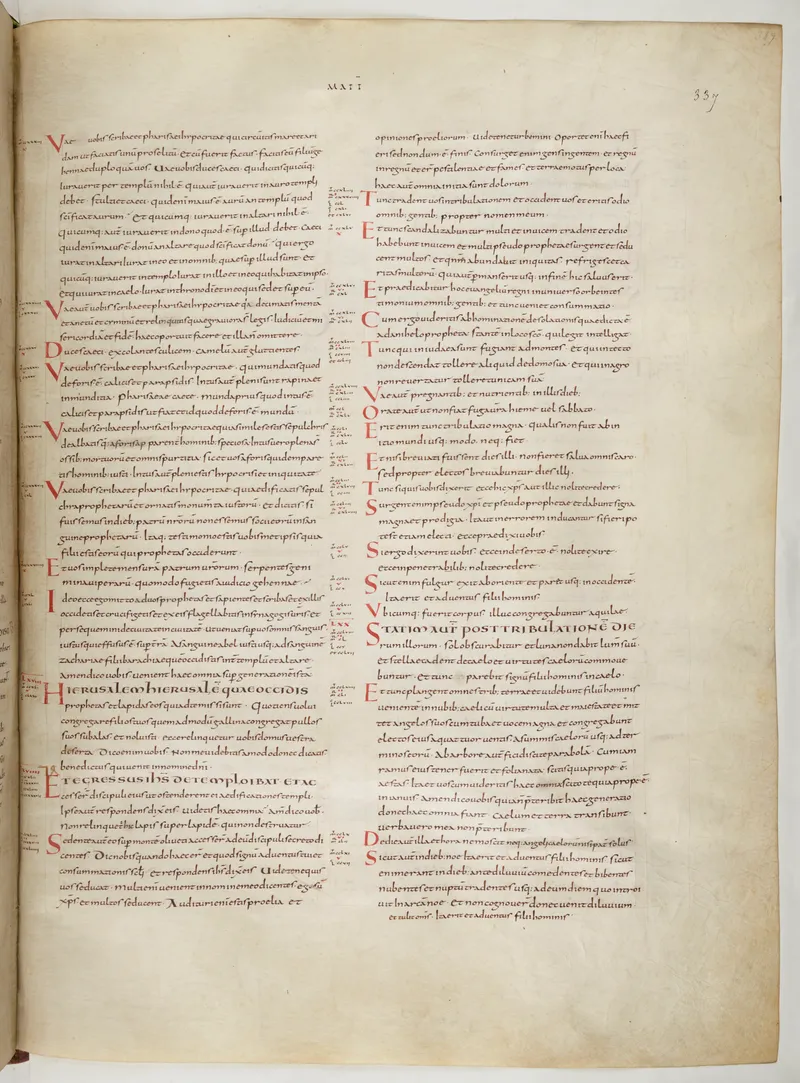 MATT
337
Vae uobis scribae et pharisaei hypocritae qui circuitis mare et ari
dam ut faciatis unū proselitū. et cū fuerit factus facitis eū filiū ge
hennae duplo quā uos. Vae uobis duces caeci. qui dicitis quicūq;
iurauerit per templū nihil ē. qui aut̄ iurauerit in auro templi
debet. stulti et caeci. quid eni maius ē aurū an templū quod
sc̄ificat aurum. et quicumq; iurauerit in altari nihil ē.
quicumq; aut̄ iurauerit in dono quod ē sup illud debet. Caeci
quid eni maius ē donū an altare quod sc̄ificat donū. qui ergo
iurat in altari iurat in eo et in omnib; quae sup illud sunt. et
quicūq; iurauerit in templo iurat in illo et in eo qui habitat in ipso.
et qui iurat in caelo iurat in throno dī et in eo qui sedet sup eū.
Vae uobis scribae et pharisaei hypocritae quia decimatis menta
et anetū et cyminū et reliquistis quae grauiora s̄ legis iudiciū et mi
sericordiā et fidē. haec oportuit facere et illa n̄ omittere.
Duces caeci excolantes culicem. camelū aut̄ glutientes.
Vae uobis scribae et pharisaei hypocritae. qui mundatis quod
deforis ē calicis et parapsidis. intus aut̄ pleni sunt rapina et
inmunditia. Pharisaee caece. munda prius quod intus ē
calicis et parapsidis ut fiat et id quod deforis ē mundū.
Vae uobis scribae et pharisaei hypocritae quia similes estis sepulchris
dealbatis q; aforis parent hominib; speciosa. intus uero plena s̄
ossib; mortuorū et omni spurcitia. sic et uos aforis quidem pare
tis hominib; iusti. intus aut̄ pleni estis hypocrisi et iniquitate.
Vae uobis scribae et pharisaei hypocritae. quia aedificatis sepul
chra prophetarū et ornatis monumta iustorū. et dicitis si
fuissemus in dieb; patrū nrōrū non essemus socii eorū in san
guine prophetarū. itaq; testimonio estis uobismet ipsis quia
filii estis eorū qui prophetas occiderunt.
Et uos implete mensurā patrum uestrum. serpentes geni
mina uiperarū. quomodo fugietis a iudicio gehennae.
Ideo ecce ego mitto ad uos prophetas et sapientes et scribas et ex illis
occidetis et crucifigetis et ex eis flagellabitis in synagogis uestris et
persequemini de ciuitate in ciuitatē. ut ueniat sup uos omnis sanguis
iustus qui effusus ē sup terrā. A sanguine abel iusti usq; ad sanguinē
zachariae filii barachiae quē occidistis int templū et altare.
amen dico uobis uenient haec omnia sup generationē istā.
HIERUSALEM HIERUSALĒ QUAE OCCIDIS
prophetas et lapidas eos qui ad te missi sunt. Quotiens uolui
congregare filios tuos quemadmodū gallina congregat pullos
suos sub alas. et noluisti. ecce relinquetur uobis domus uestra
deserta. Dico enim uobis. non me uidebitis amodo donec dicatis
benedictus qui uenit in nomine dn̄i.
ET EGRESSUS IH̄S DE TEMPLO IBAT ET AC
cesser̄ discipuli eius ut ostenderent ei aedificationes templi.
Ipse aut̄ respondens dixit eis. uidetis haec omnia. am̄ dico uob.
non relinquetur hic lapis super lapidē. qui non destruatur.
Sedente aut̄ eo sup montē oliueti accesser̄ ad eū discipuli secreto di
centes. Dic nobis quando haec er̄ et quod signū aduentus tui et
consummationis scl̄i. et respondens ih̄s dixit eis. Videte ne quis
uos seducat. multi eni uenient in nomine meo dicentes. ego sū
xp̄s. et multos seducent. Audituri eni estis proelia et
opiniones proeliorum. Videte ne turbemini. Oportet eni haec fi
eri sed nondum ē finis. Consurget enim gens in gentem. et regnū
in regnū et er̄ pestilentiae et fames et terraemotus per loca.
haec aut̄ omnia initia sunt dolorum.
Tunc tradent uos in tribulationem et occident uos et eritis odio
omnib; gentib; propter nomen meum.
Et tunc scandalizabuntur multi et inuicem tradent et odio
habebunt inuicem et multi pseudo prophetae surgent et sedu
cent multos. et qm̄ abundabit iniquitas refrigescet ca
ritas multorū. qui aut̄ p̄manserit usq; in finē hic saluus erit.
Et praedicabitur hoc euangeliū regni in uniuerso orbe in tes
timonium omnib; gentib; et tunc ueniet consummatio.
Cum ergo uideritis abhominationē desolationis quae dicta ē
a danihelo propheta stantē in loco sc̄o. qui legit intellegat.
Tunc qui in iudaea sunt fugiant ad montes. et qui in tecto
non descendat tollere aliquid de domo sua. et qui in agro
non reuertatur tollere tunicam suā.
Vae aut̄ pregnantib; et nutrientib; in illis dieb;
Orate aut̄ ut non fiat fuga ur̄a hieme uel sabbato.
Erit enim tunc tribulatio magna. qualis non fuit ab in
itio mundi usq; modo. neq; fiet.
Et nisi breuiati fuissent dies illi. non fieret salua omnis caro.
sed propter electos breuiabuntur dies illi.
Tunc si quis uobis dixerit ecce hic xp̄s aut illic nolite credere.
Surgent enim pseudo xp̄i et pseudo prophetae et dabunt signa
magna et prodigia. ita ut in errorem inducantur si fieri po
test etiam electi. ecce praedixi uobis.
Si ergo dixerint uobis. ecce in deserto ē. nolite exire.
ecce in penetrabilib; nolite credere.
Sicut enim fulgur exit ab oriente et paret usq; in occidente.
ita erit et aduentus filii hominis.
Vbicumq; fuerit corpus illuc congregabuntur aquilae.
STATIM AUT̄ POST TRIBULATIONĒ DIE
rum illorum. sol obscurabitur et luna non dabit lum̄ suū.
et stellae cadent de caelo et uirtutes caelorū commoue
buntur. et tunc parebit signū filii hominis in caelo.
Et tunc plangent omnes trib; terrae et uidebunt filiū hominis
uenientē in nubib; caeli cū uirtute multa et maiestate. et mit
tet angelos suos cum tuba et uoce magna et congregabunt
electos eius a quattuor uentis a summis caelorū usq; ad ter
minos eorū. Ab arbore aut̄ fici discite parabolā. Cum iam
ramus eius tener fuerit et folia nata scitis quia prope ē.
aestas. ita et uos cum uideritis haec omnia scitote quia prope ē
in ianuis. amen dico uobis quia n̄ p̄teribit haec generatio
donec haec omnia fiant. Caelum et terra transibunt.
uerba uero mea non p̄teribunt.
De die aut̄ illa et hora nemo scit neq; angeli caelorū nisi pat̄ solus
Sicut aut̄ in dieb; noe ita erit et aduentus filii hominis. sicut
enim erant in dieb; ante diluuiū comedentes et bibentes
nubentes et nuptū tradentes usq; ad eum diem quo introi
uit in arcā noe. et non cognouer̄ donec uenit diluuium
et tulit om̄s. ita erit et aduentus filii hominis.